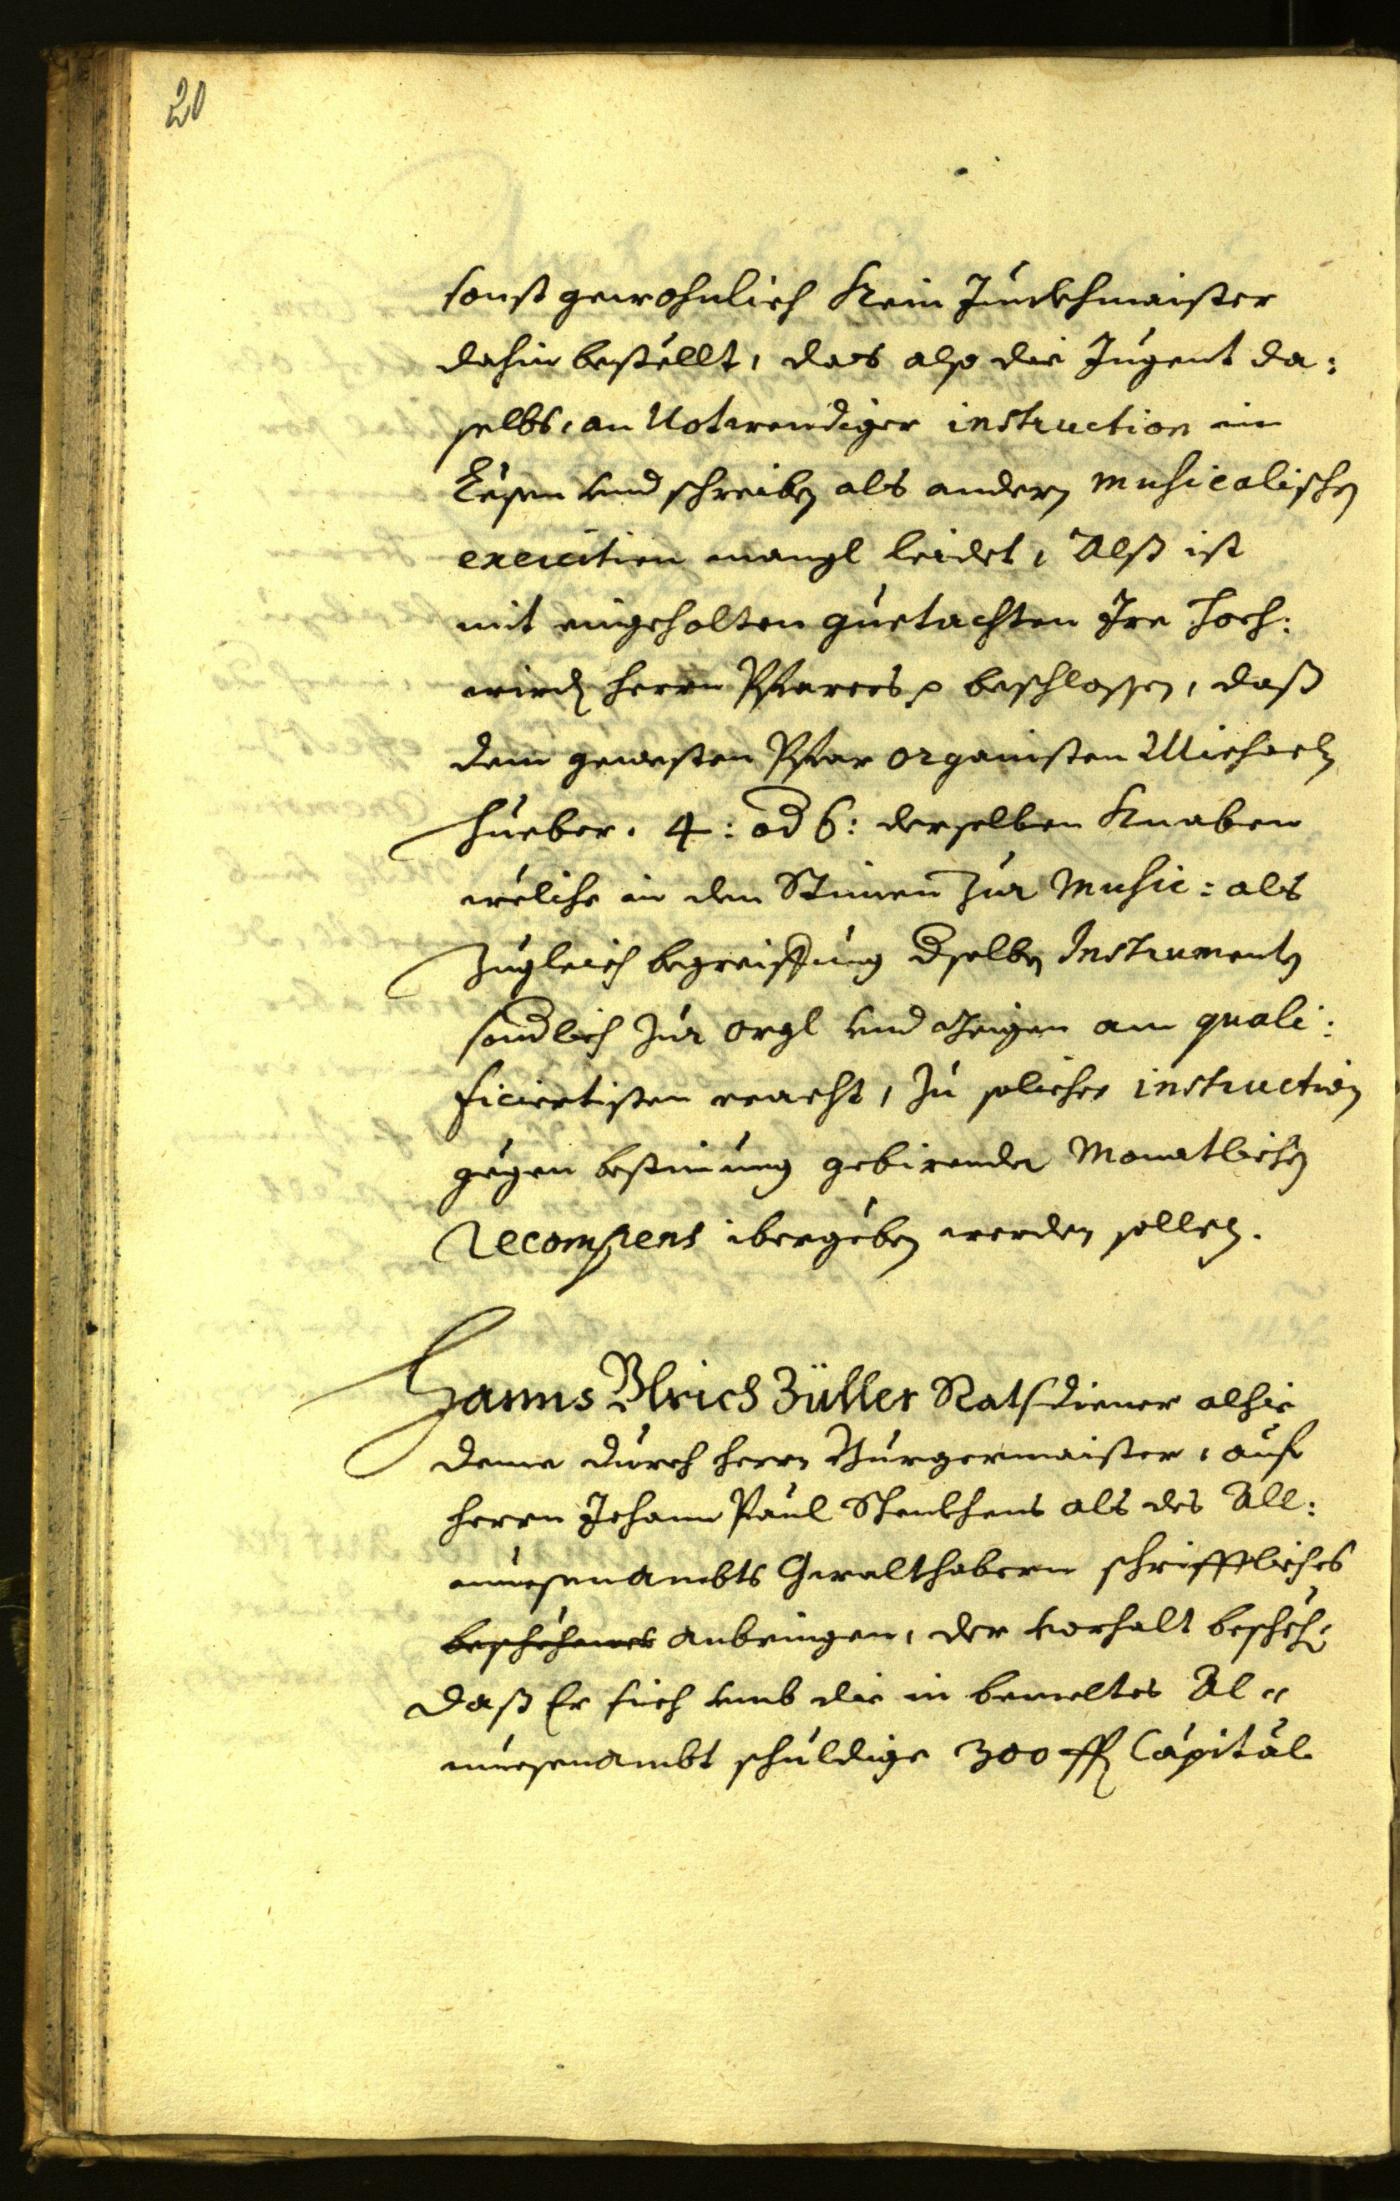 20
sonst gewohnlich kein Junckhmaister
dahin bestellt, das also die Jugent da:
selbs, an Notwendiger instruction im
Lesen und schreiben als andern musicalischen
exercitien mangl leidet, Alß ist
mit eingeholten guetachten Ire Hoch:
wird herrn Pfarrers p beschlossen, daß
dem gewesten Pfar organisten Michaeln
Hueber. 4: od 6: derselben Knaben
weliche in den Stimen zur Music: als
zugleich begreiffung dselben Instrumenten
sondlich zur orgl und Geigen am quali:
ficiertisten eracht, zu solicher instruction
gegen bestimung gebirender Monatlichen
Recompens ibergeben werden sollen.
Hanns Ulrich Züller Ratsdiener alhie
deme durch herrn Burgermaister, auf
herrn Johann Paul Schenkhens als des All:
muesenambts Gewalthabern schrifftliches
beschehenes anbringen, der vorhalt bescheh:
daß Er sich umb die in bemeltes Al=
muesenambt schuldige 300 fl Capital